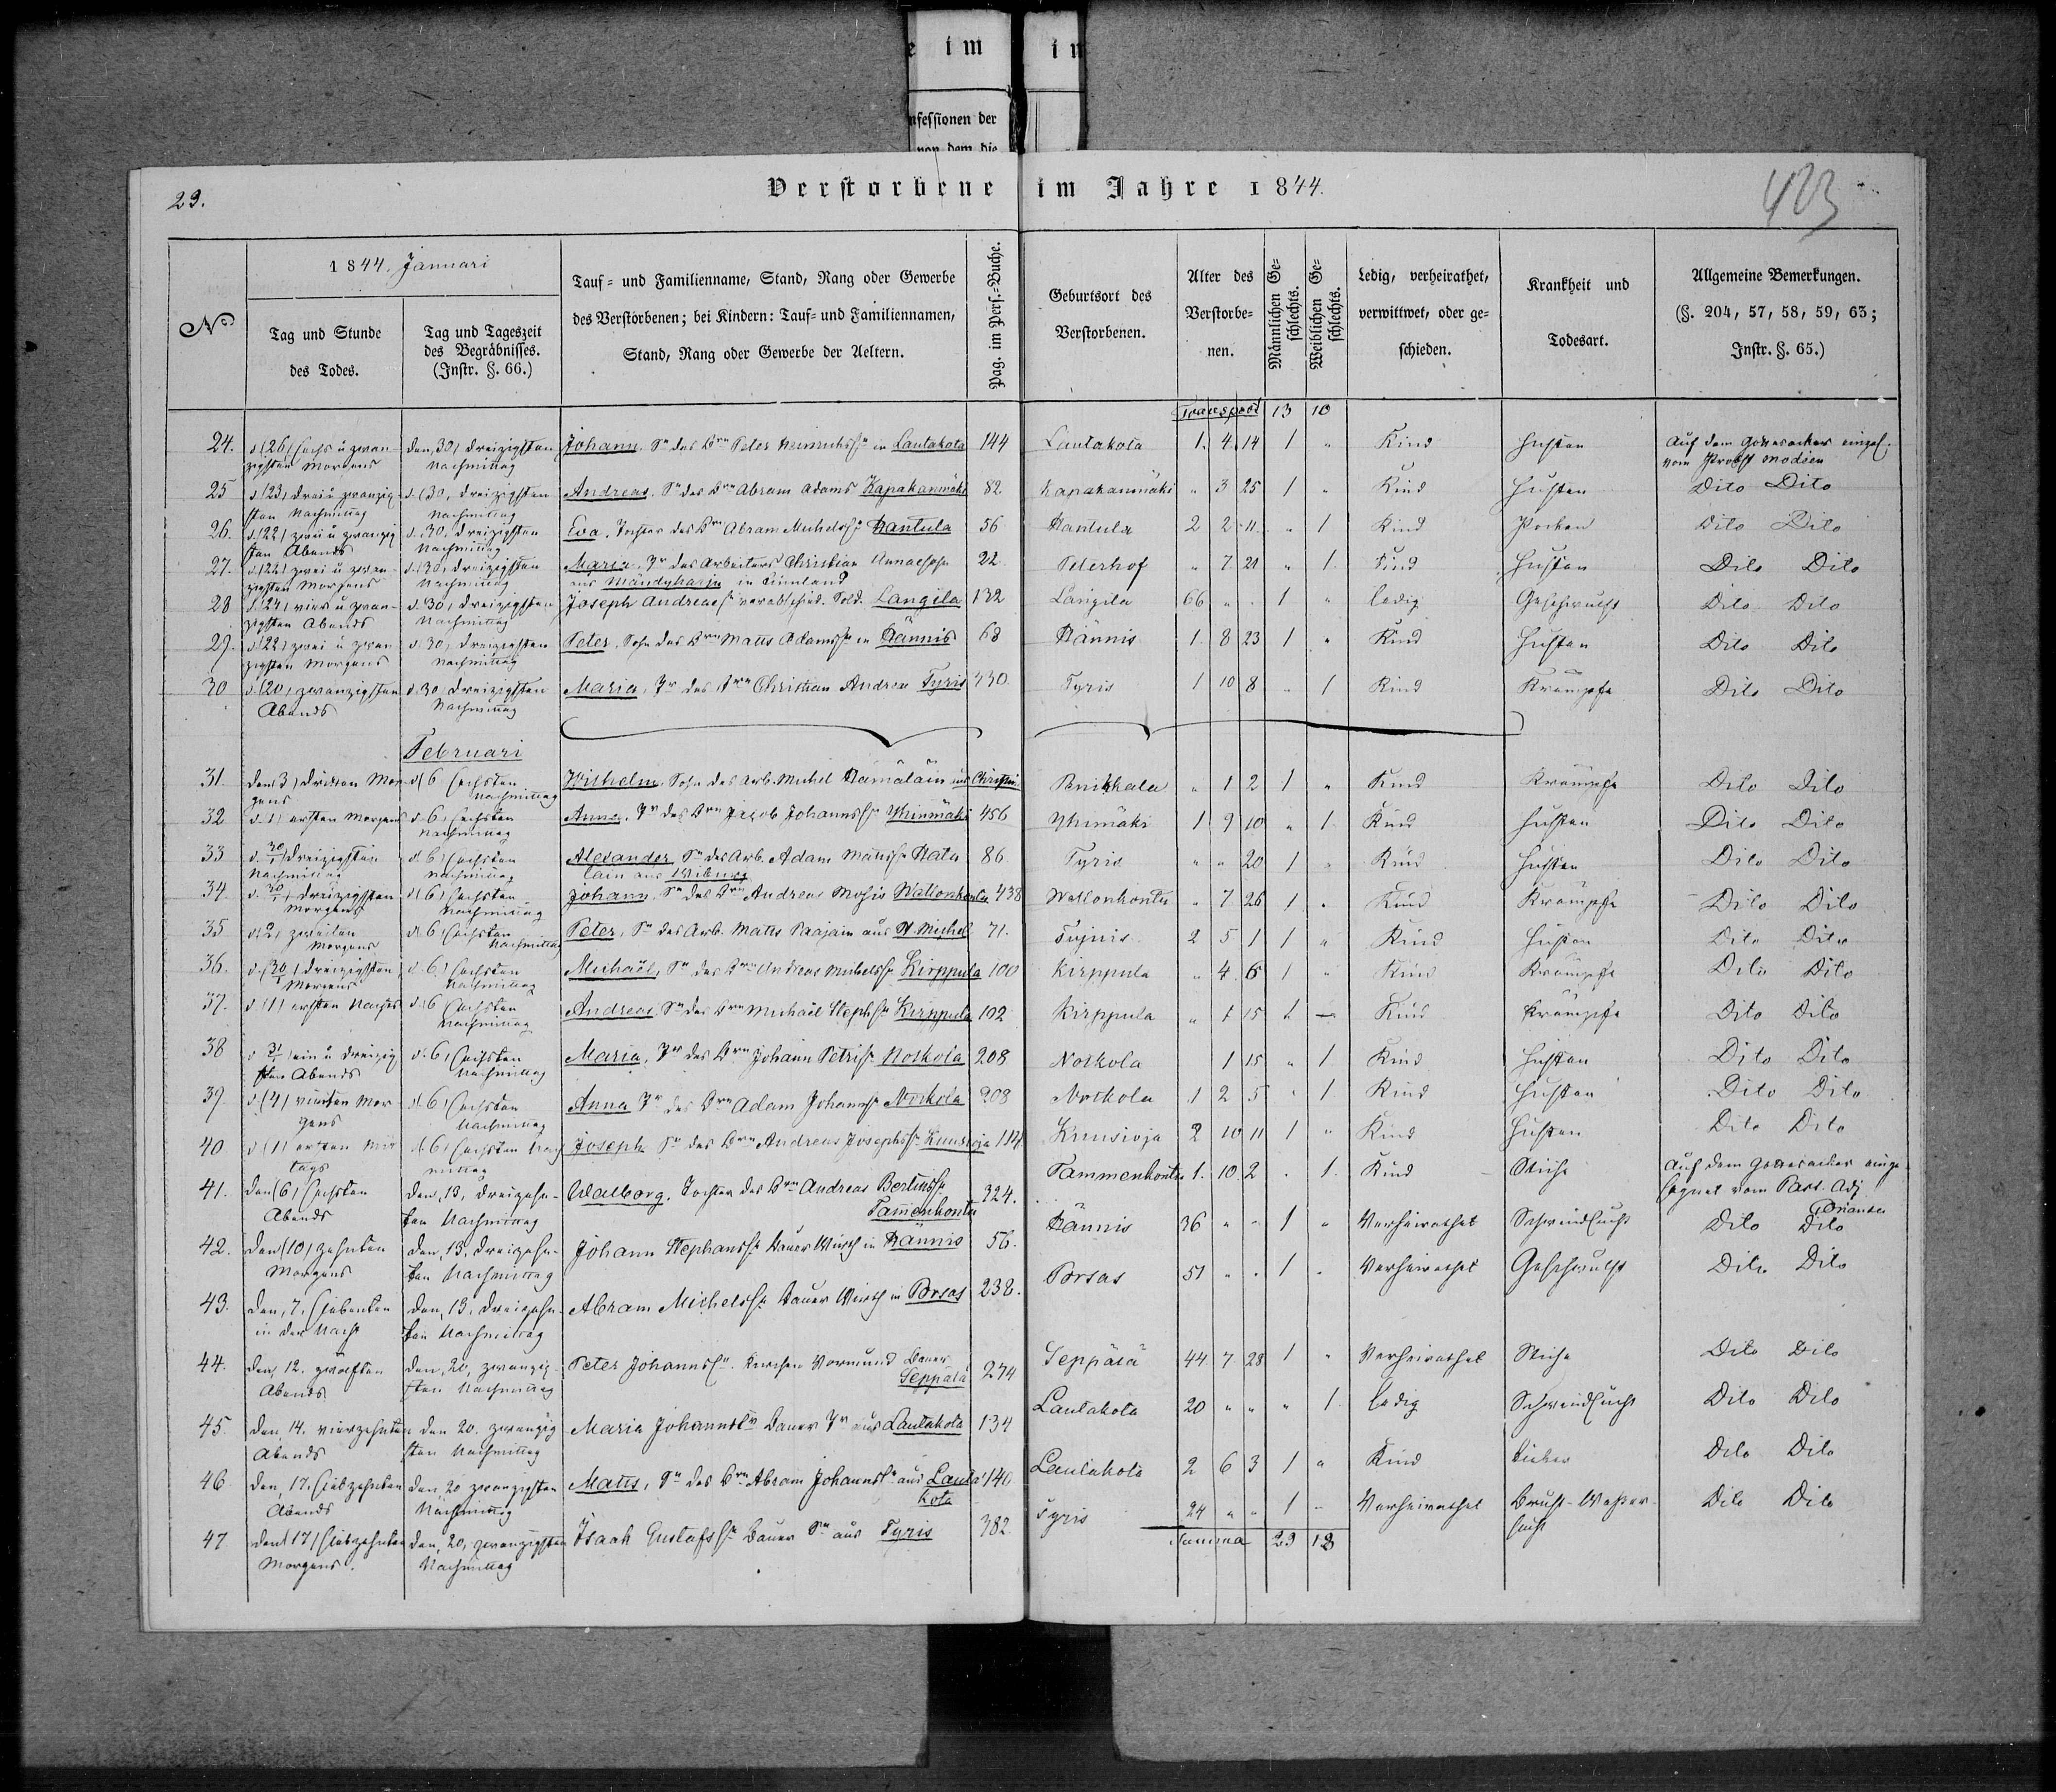 e im
in
nfessionen der
von dem die
29.
Verstorbene im Jahre 1844.
403
1844. Januari
No
Tag und Stunde des Todes.
Tag und Tageszeit des Begräbnisses. (Instr. §. 66.)
Tauf- und Familienname, Stand, Rang oder Gewerbe des Verstorbenen; bei Kindern: Tauf- und Familiennamen, Stand, Rang oder Gewerbe der Aeltern.
Pag. im Pers.-Buche.
Geburtsort des Verstorbenen.
Alter des Verstorbenen.
Männlichen Geschlechts.
Weiblichen Geschlechts.
Ledig, verheirathet, verwittwet, oder geschieden.
Krankheit und Todesart.
Allgemeine Bemerkungen. (§. 204, 57, 58, 59, 63; Instr. §. 65.)
Transport 13 10
24. d. (26) sechs u zwanzigsten Morgens den 30, dreizigsten Nachmittag Johann, Sn des Brn Peter Heinrichsn in Lautakota 144 Lautakota 1. 4 14 1 " Kind Husten Auf dem Gottesacker vom Probst
25 d. (23) drei u zwanzigsten Nachmittag d. (30, dreizigsten Nachmittag Andreas, Sn des Brn Abram Adams Kapakanmäki 82 Kapakanmäki " 3 25 1 " Kind Husten Dito Dito
26. d. (22) zwei u zwanzigsten Abends d. 30, dreizigsten Nachmittag Eva, Tochter des Brn Abram Michelss Hantula 56 Hantula 2 2 11 " 1 Kind Pocken Dito Dito
27. d. (22) zwei u zwanzigsten Morgens d. (30, dreizigsten Nachmittag Maria, Tr des Arbeiters Christian aus Mändyharju in Finnland 22 Peterhof " 7 21 " 1 Kind Husten Dito Dito
28 d. (24) vier u zwanzigsten Abends d. 30, dreizigsten Nachmittag Joseph Andreass verabschied. Sold. Langila 132 Langila 66 " " 1 " ledig Geschwulst Dito Dito
29. d. (22) zwei u zwanzigsten Morgens d. 30, dreizigsten Nachmittag Peter, Sohn des Brn Matts Adamss in Hännis 68 Hännis 1 8 23 1 " Kind Husten Dito Dito
30 d. (20, zwanzigsten Abends d. 30 dreizigsten Nachmittag Maria, Tr des Brn Christian Andreas Tyris 330 Tyris 1 10 8 " 1 Kind Krämpfe Dito Dito
Februari
31. den (3) dritten Morgens d. 6 sechsten Nachmittag Wilhelm, Sohn des Arb. Michel Hämäläin " 1 2 1 " Kind Krämpfe Dito Dito
32 d. 1) ersten Morgens d. 6, sechsten Nachmittag Anna, Tr des Brn Jacob Johannss Yhinmäki 456 Yhimäki 1 9 10 " 1 Kind Husten Dito Dito
33 d. 30/1) dreizigsten Nachmittag d. 6) sechsten Nachmittag Alexander Sn des Arb. Adam aus Wiburg 86 Tyris " " 20 1 " Kind Husten Dito Dito
34 d. 30/1, dreizigsten Morgens d. 6) sechsten Nachmittag Johann, Sn des Brn Andreas Mosis Wallonkontu 438 Wallonkontu " 7 26 1 " Kind Krämpfe Dito Dito
35 d. 2, zweiten Morgens d. 6) sechsten Nachmittag Peter, Sn des Arb. Matts Raajain aus St. Michel 71. 2 5 1 1 " Kind Husten Dito Dito
36. d. (30/1) dreizigsten Morgens d. 6) sechsten Nachmittag Michaël, Sn des Brn Andreas Michelss Kirppula 100 Kirppula " 4 6 1 " Kind Krämpfe Dito Dito
37. d. (1) ersten Nachts d. 6 sechsten Nachmittag Andreas Sn des Brn Michaël Stephs Kirppula 102 Kirppula " 1 15 1 — Kind Krämpfe Dito Dito
38 d 31/1) ein u dreizigsten Abends d. 6, sechsten Nachmittag Maria, Tr des Brn Johann Petris Noskola 208 Noskola 1 15 " 1 Kind Husten Dito Dito
39. d. (4) vierten Morgens d. 6, sechsten Nachmittag Anna Tr des Brn Adam Johanns Noskola 208 Noskola 1 2 5 " 1 Kind Husten Dito Dito
40 d (1) ersten Mittags d. 6, sechsten Nachmittag Joseph Sn des Brn Andreas Josephss Kuusioja 114 Kuusioja 2 10 11 1 " Kind Husten Dito Dito
41. den (6) sechsten Abends den, 13, dreizehnten Nachmittag Walborg, Tochter des Brn Andreas Bertilss Tammenkontu 324. Tammenkontu 1. 10 2 . 1. Kind Stiche Auf dem Gottesacker eingesegnet vom Past. Adj
42. den (10) zehnten Morgens den, 13, dreizehnten Nachmittag Johann Stephanss Bauer Wirth in Hännis 56. Hännis 36 " " 1 " Verheirathet Schwindsucht Dito Dito
43. den, 7, siebenten in der Nacht den, 13, dreizehnten Nachmittag Abram Michelss Bauer Wirth in Porsas 238. Porsas 51 " " 1 " Verheirathet Geschwulst Dito Dito
44. den, 12. zwölften Abends den, 20, zwanzigsten Nachmittag Peter Johannss. Kirchen Vormund Bauer Seppälä 274 Seppälä 44 7 28 1 " Verheirathet Stiche Dito Dito
45. den, 14. vierzehnten Abends den 20. zwanzigsten Nachmittag Maria Johannstr Bauer Tr aus Lautakota 134 Lautakota 20 " " " 1 ledig Schwindsucht Dito Dito
46 den, 17. siebzehnten Abends den, 20 zwanzigsten Nachmittag Matts, Sn des Brn Abram Johannss aus Lautakota 140 Lautakota 2 6 3 1 " Kind Dito Dito
47 den (17) siebzehnten Morgens. den, 20, zwanzigsten Nachmittag Isaak Gustafss Bauer Sn aus Tyris 382. Tyris 24 " " 1 " Verheirathet Brust-Wassersucht Dito Dito
Summa 23 18